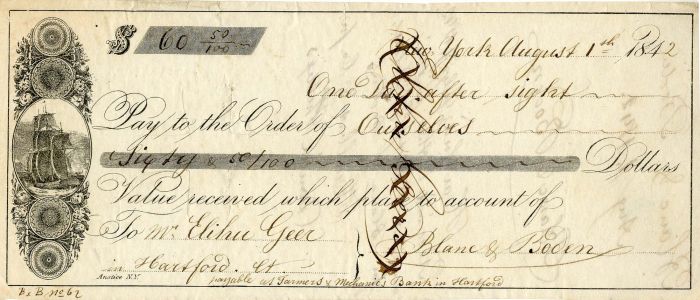 $ 60 50/100
New York August 1th 1842
One Day after sight
Pay to the Order of Ourselves
Sixty & 50/100 Dollars
Value received which place to account of
To Mr. Elihu Geer Blanc & Boden
in Hartford Ct.
payable at Farmers & Mechanics Bank in Hartford
Anstice N.Y.
B & B. No 62